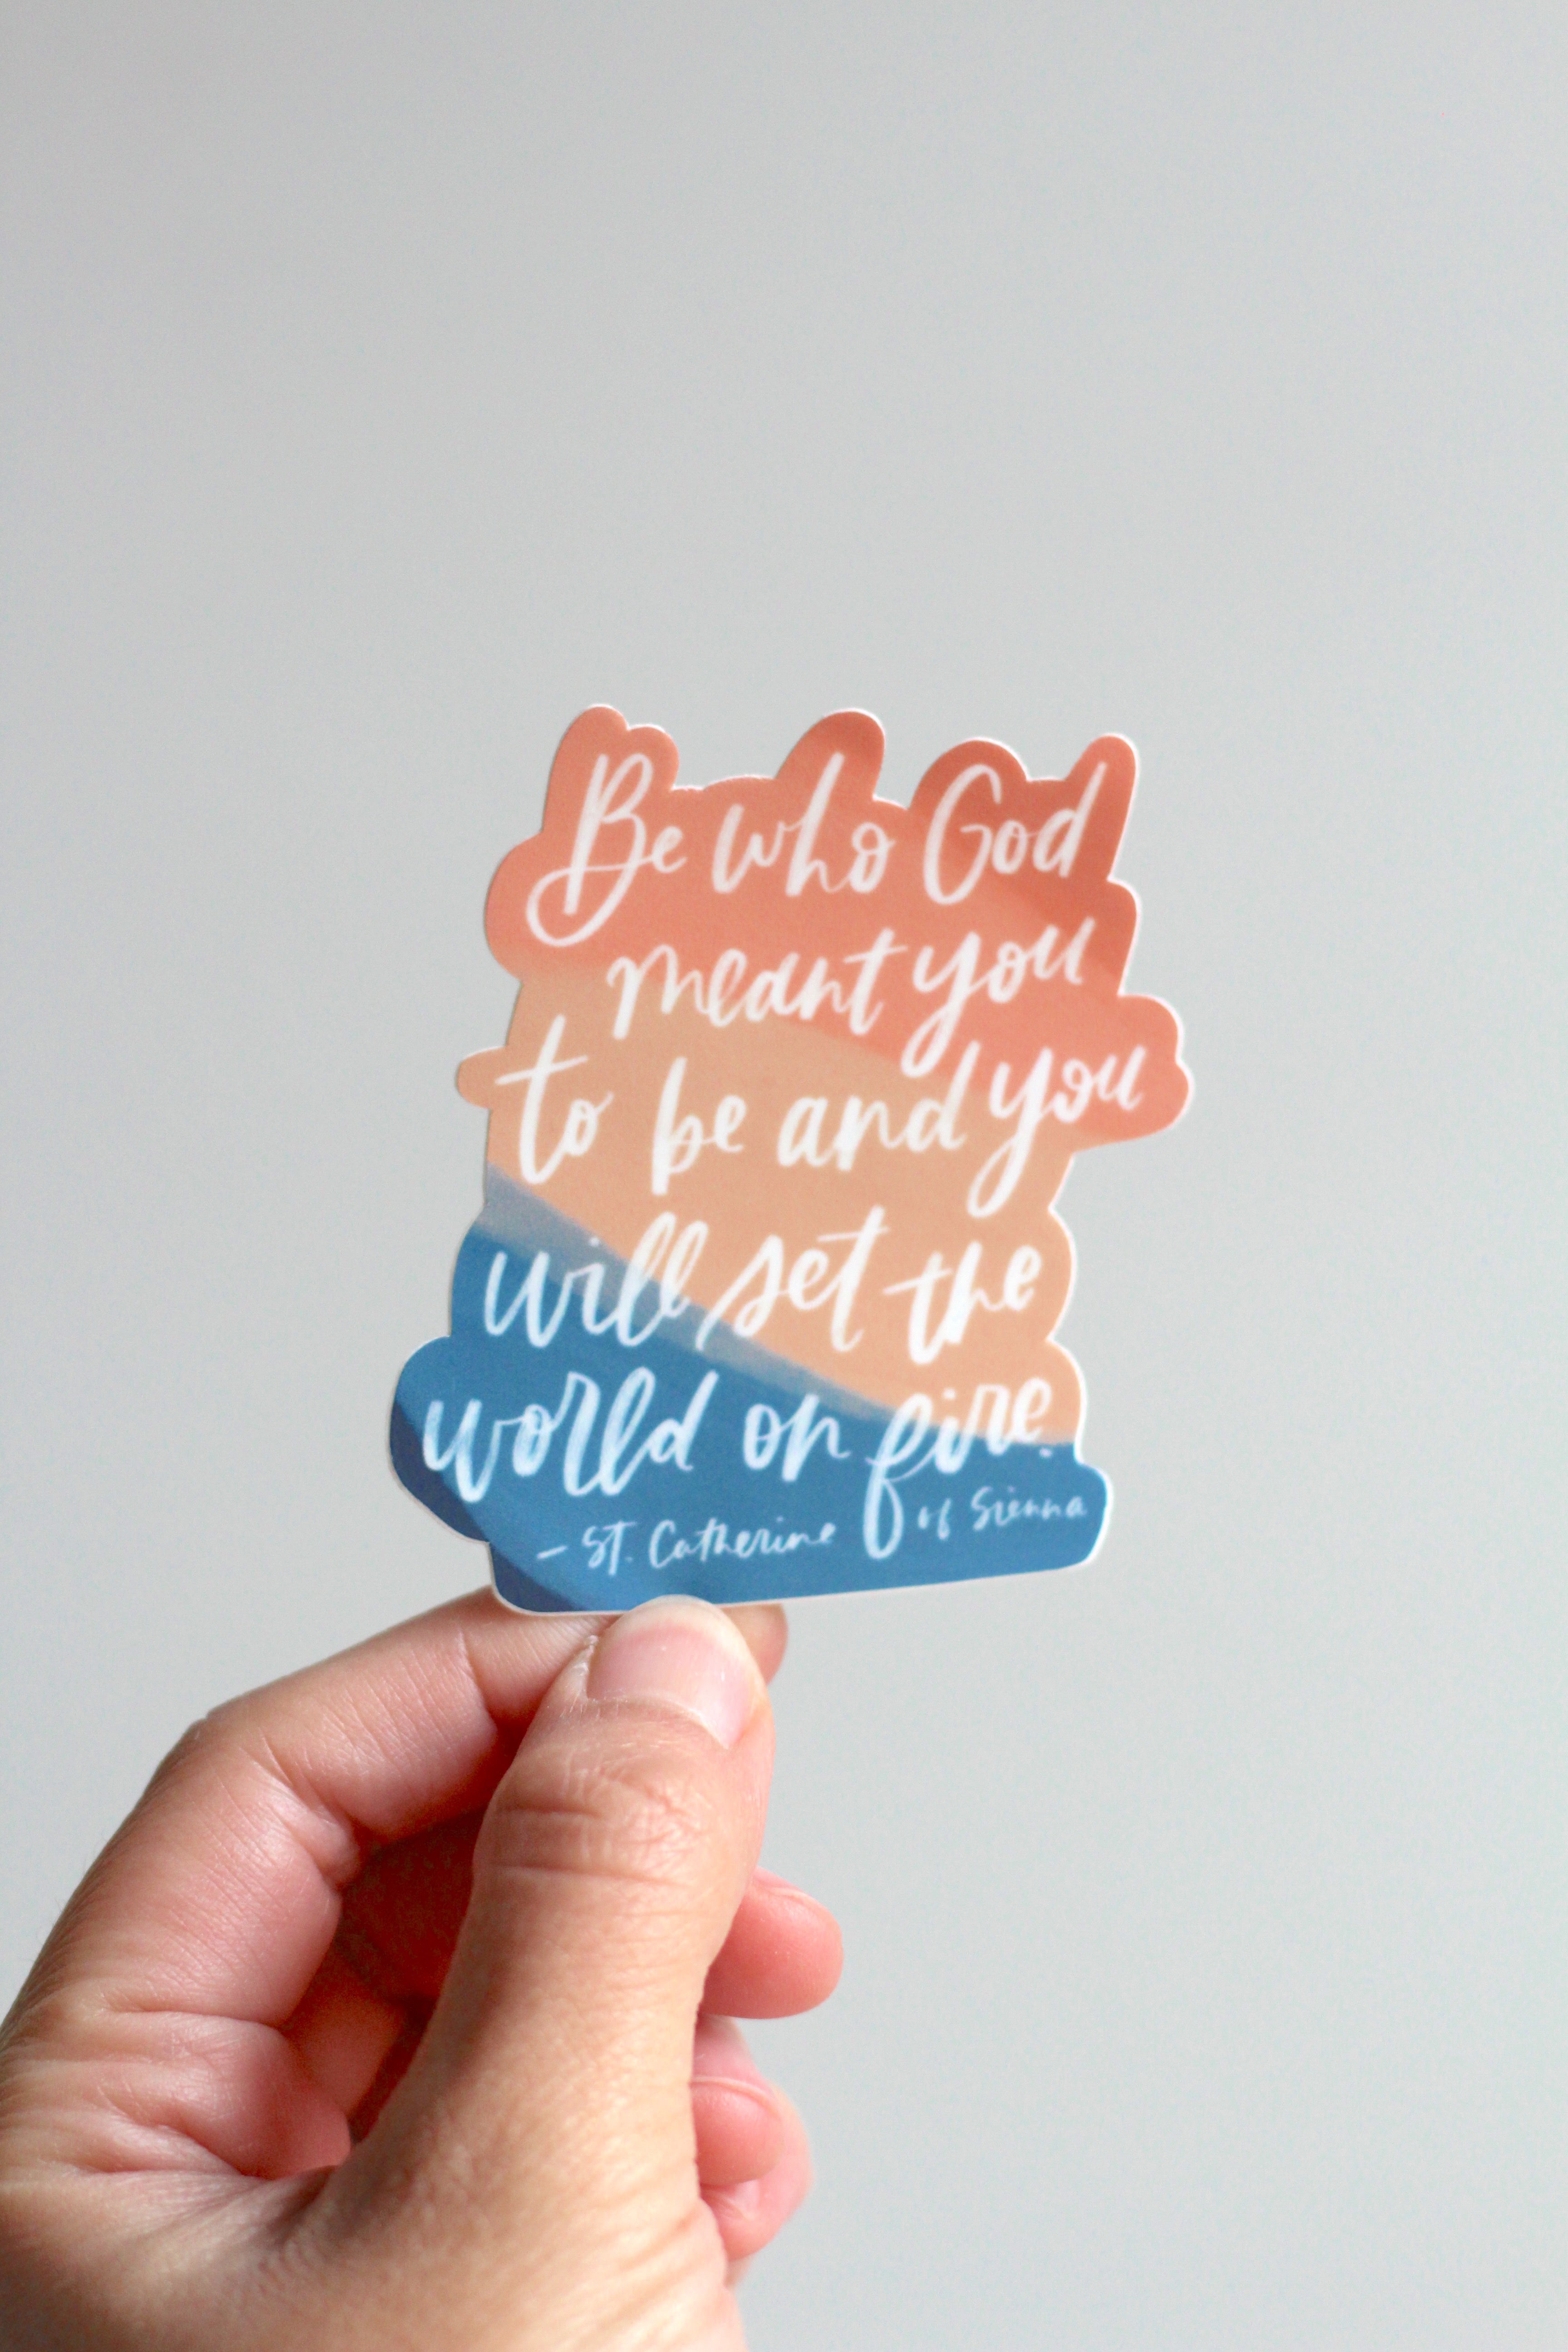 Be who God
meant you
to be and you
will set the
world on fire.
- ST. Catherine of Sienna